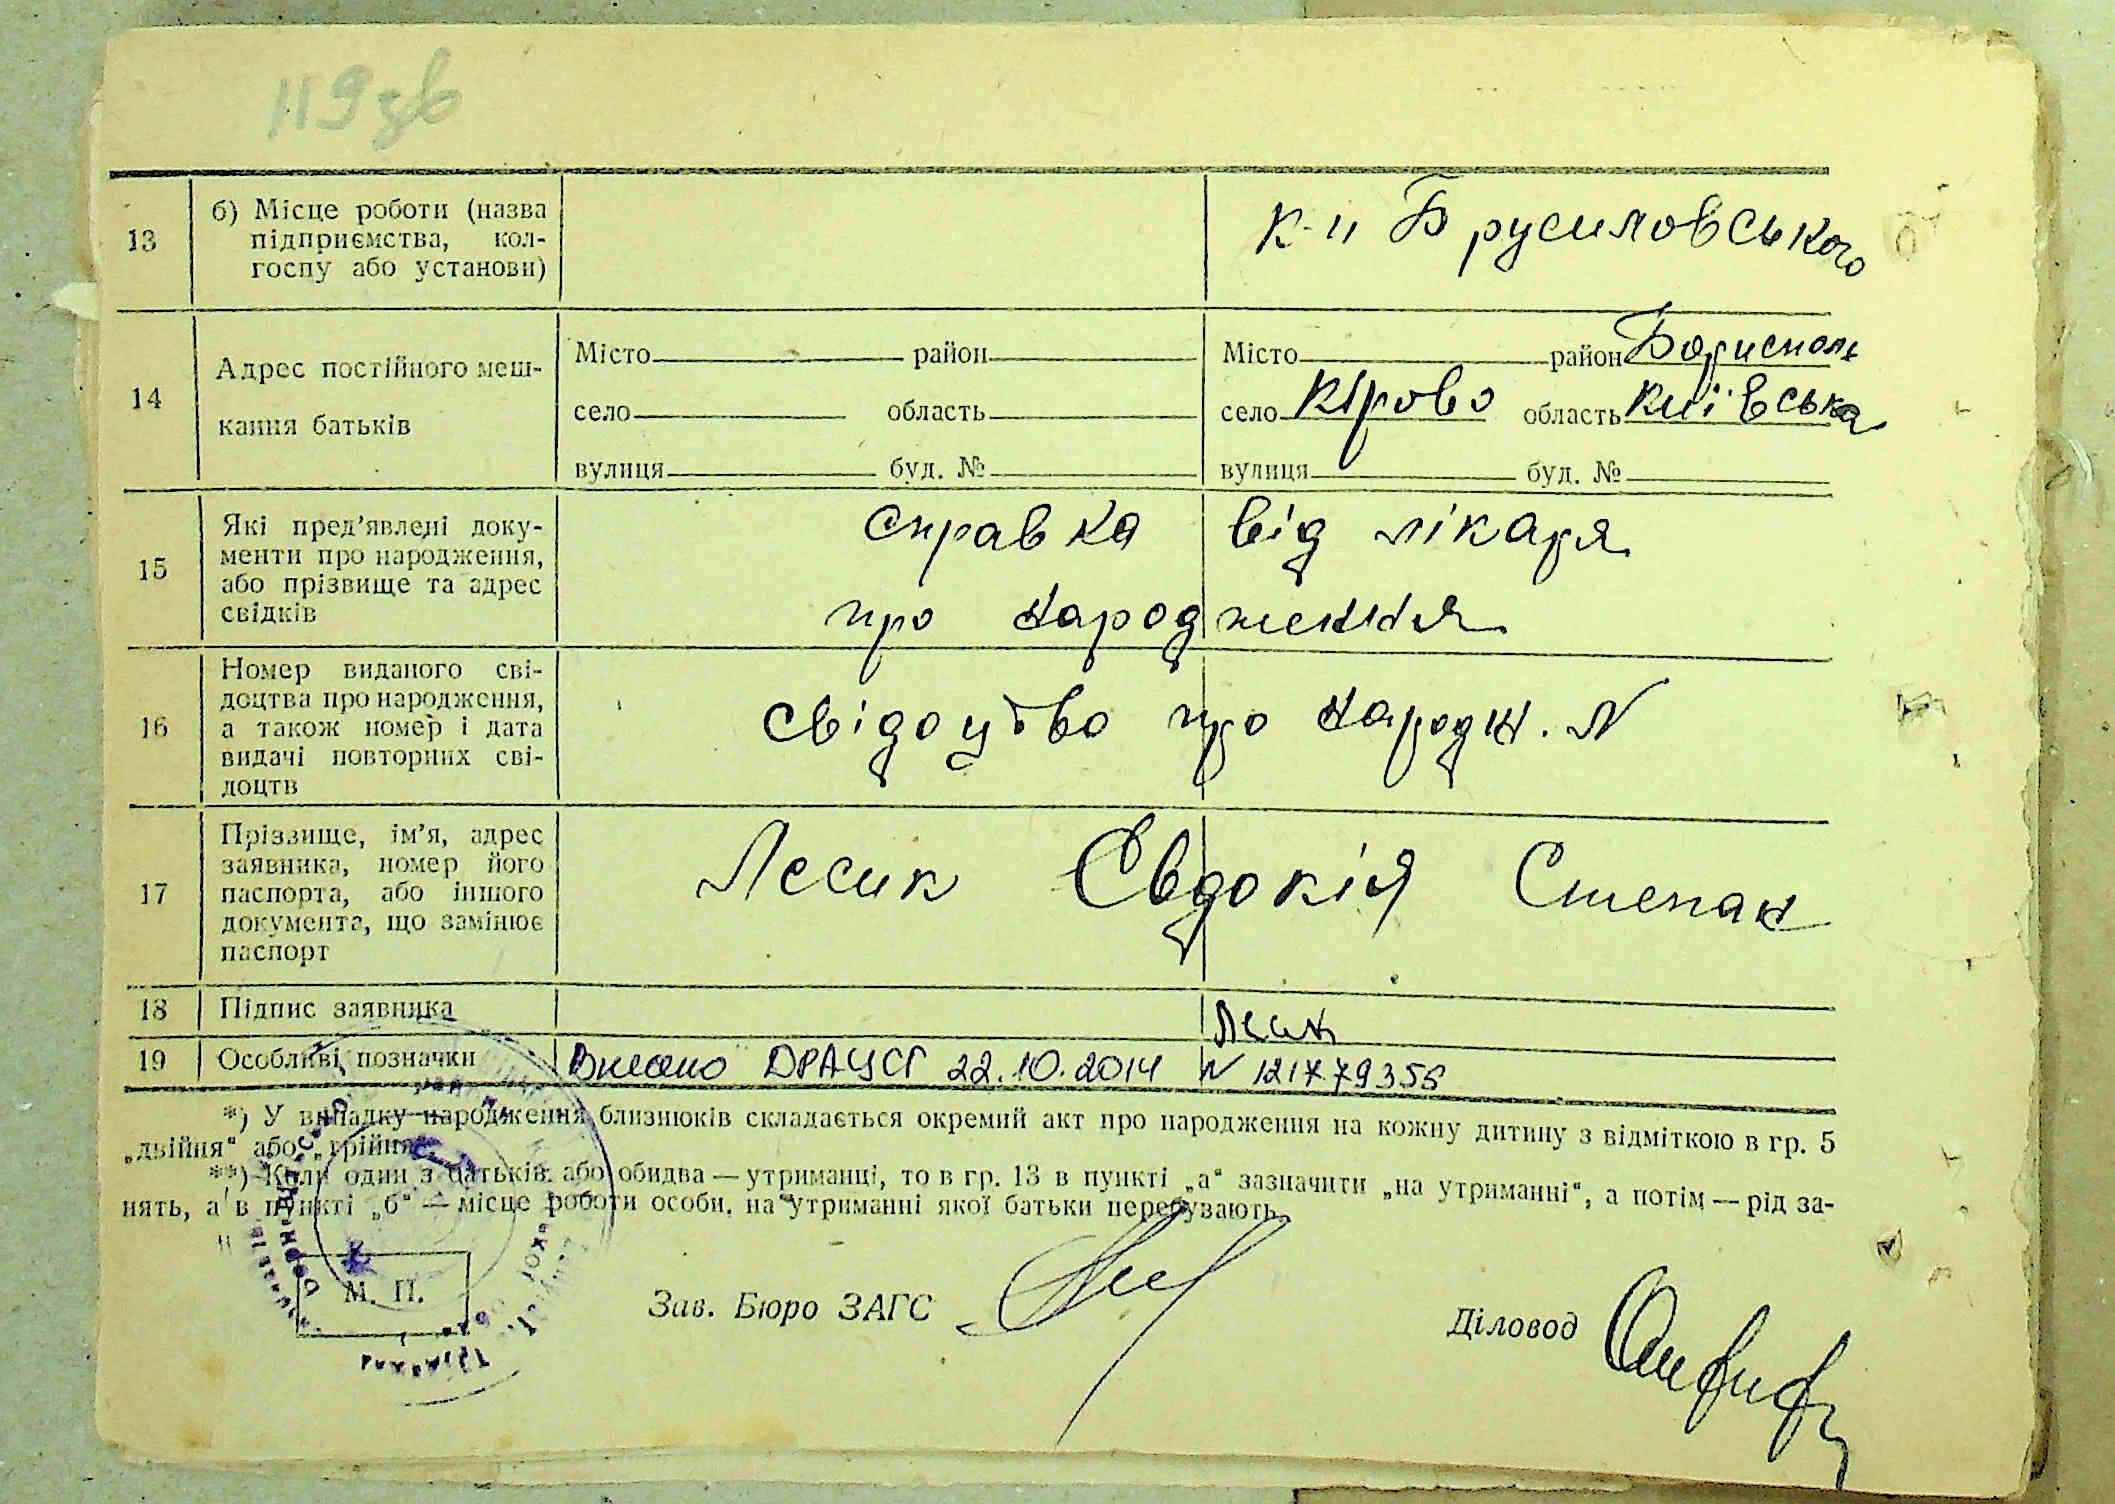 119 зв
13
б) Місце роботи (назва
підприємства, кол-
госпу або установи)
к-п Брусиловського
14
Адрес постійного меш-
кання батьків
Місто район
село область
вулиця буд. №
Місто район Бориспол
село Кірово область Київська
вулиця буд. №
15
Які пред'явлені доку-
менти про народження,
або прізвище та адрес
свідків
справка від лікаря
про народження
16
Номер виданого сві-
доцтва про народження,
а також номер і дата
видачі повторних сві-
доцтв
свідоцтво про народж. N
17
Прізвище, ім'я, адрес
заявника, номер його
паспорта, або іншого
документа, що замінює
паспорт
Лесик Євдокія Степан
18
Підпис заявника
Лесик
19
Особливі позначки
Внесено ДРАЦСГ 22.10.2014 N 121779356
*) У випадку народження близнюків складається окремий акт про народження на кожну дитину з відміткою в гр. 5
„двійня" або „трійня".
**) Коли один з батьків або обидва — утриманці, то в гр. 13 в пункті „а" зазначити „на утриманні", а потім — рід за-
нять, а в пункті „б" — місце роботи особи, на утриманні якої батьки перебувають.
М. П.
Зав. Бюро ЗАГС
Діловод